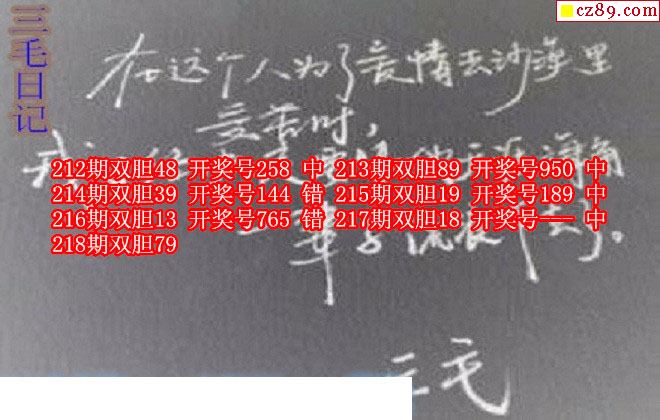 三毛日记
cz89.com
在这个人为了爱情去沙漠里
受苦时，
212期双胆48 开奖号258 中 213期双胆89 开奖号950 中
214期双胆39 开奖号144 错 215期双胆19 开奖号189 中
216期双胆13 开奖号765 错 217期双胆18 开奖号--- 中
218期双胆79
三毛